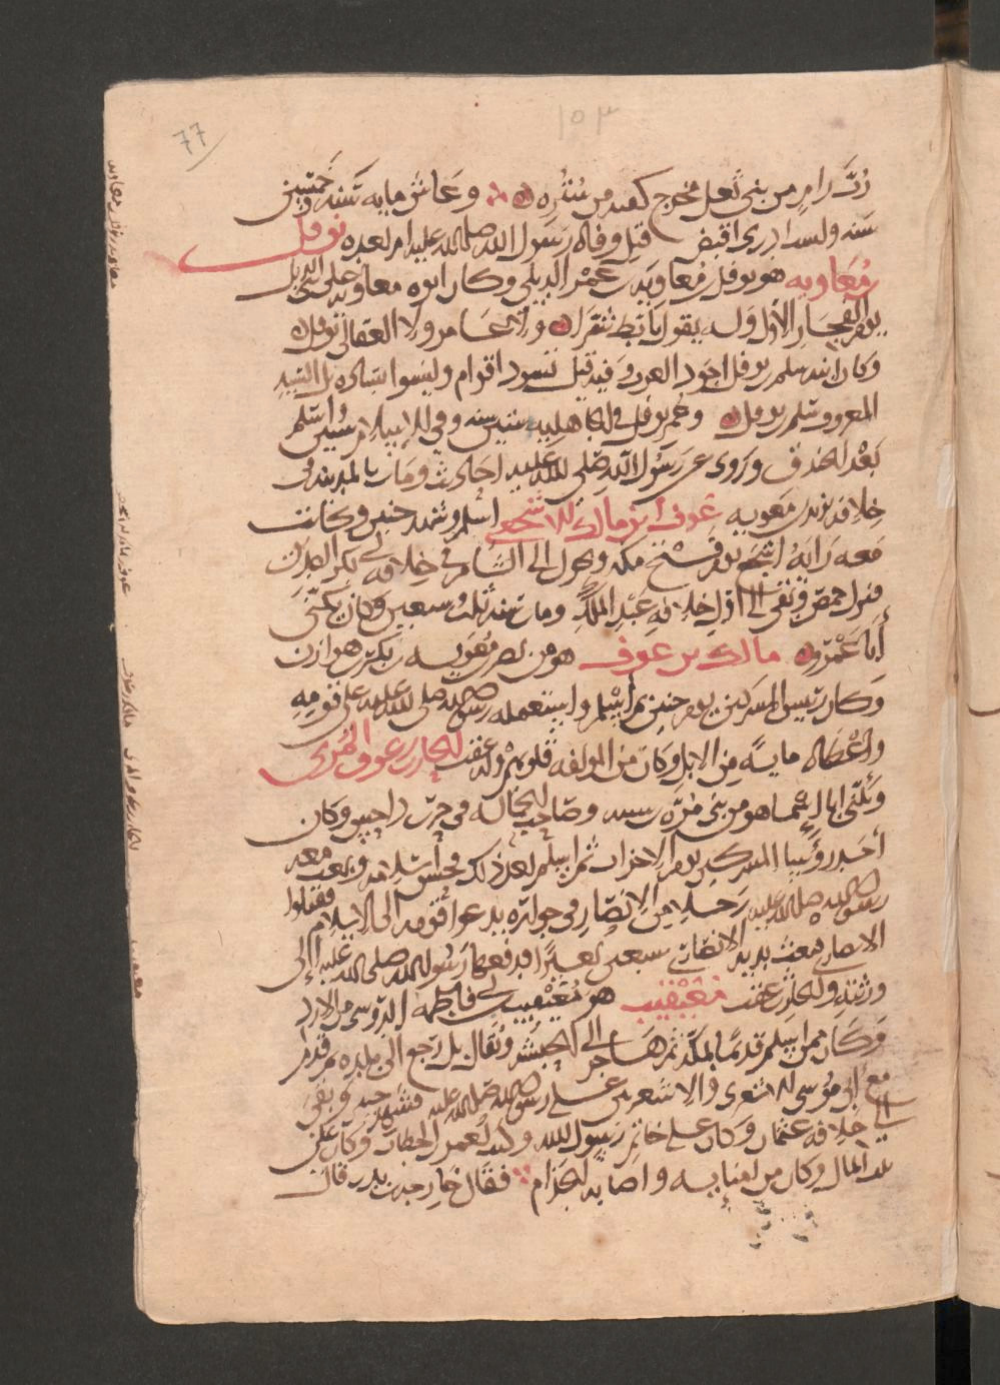 77
١٥٣
رُبَّ رامٍ من بنى ثعل مخرج كفيه من سُتَره وعاش مايه سنه وخمسين
سنه ولست ادرى اقبض قبل وفاه رسول الله صلى الله عليه ام بعده نوفل
بن مُعَاويه هو نوفل بن مُعاويه بن عمرو الديلى وكان ابوه معاويه على الديل
يوم الفجار الاول وله يقول تابط شرا ولا عامر ولا النفاثى نوفل
وكان ابنه سلم بن نوفل اجود العرب وفيه قيل نسود اقوام وليسوا بساده بل السيد
المعروف سلم بن نوفل وعُمر نوفل فى الجاهليه ستين سنه وفى الاسلام ستين اسلم
بعد الخندق وروى عن رسول الله صلى الله عليه احاديث ومات بالمدينه فى
خلافه يزيد بن معويه عوف بن مالك الاشجعى اسلم وشهد حنين وكانت
معه رايه اشجع يوم فتح مكه وتحول الى الشام فى خلافه ابى بكر الصديق
فنزل حمص وبقى الى اول خلافه عبد الملك ومات سنه ثلث وسبعين وكان يكنى
أبا عَمْرو مالك بن عوف هو من نصر بن معويه بن بكر بن هوازن
وكان رئيس المشركين يوم حنين ثم اسلم واستعمله رسول الله صلى الله عليه على قومه
واعطاه مايه من الابل وكان من المولفه قلوبهم وله عقب الحارث بن عوف المرى
ويكنى ابا اسما هو من بنى مره وصاحب الحماله فى حرب داحس وكان
احد رؤسا المشركين يوم الاحزاب ثم اسلم بعد ذلك فحسن اسلامه وبعث معه
رسول الله صلى الله عليه رجلا من الانصار فى جواره يدعوا قومه الى الاسلام فقتلوا
الانصارى فبعث بديه الانصارى سبعين بعيرا فدفعها رسول الله صلى الله عليه الى
ورثته وللحارث عقب مُعَيْقيب هو مُعَيْقيب بن ابى فاطمه الدوسى من الازد
وكان ممن اسلم قديما بمكه ثم هاجر الى الحبشه ويقال بل رجع الى بلده ثم قدم
مع ابى موسى الاشعرى والاشعريين على رسول الله صلى الله عليه فشهد خيبر وبقى
الى خلافه عثمان وكان على خاتم رسول الله وكتب لعمر بن الخطاب وكان على
بيت المال واصابه الجذام فقال خارجه بن زيد قال